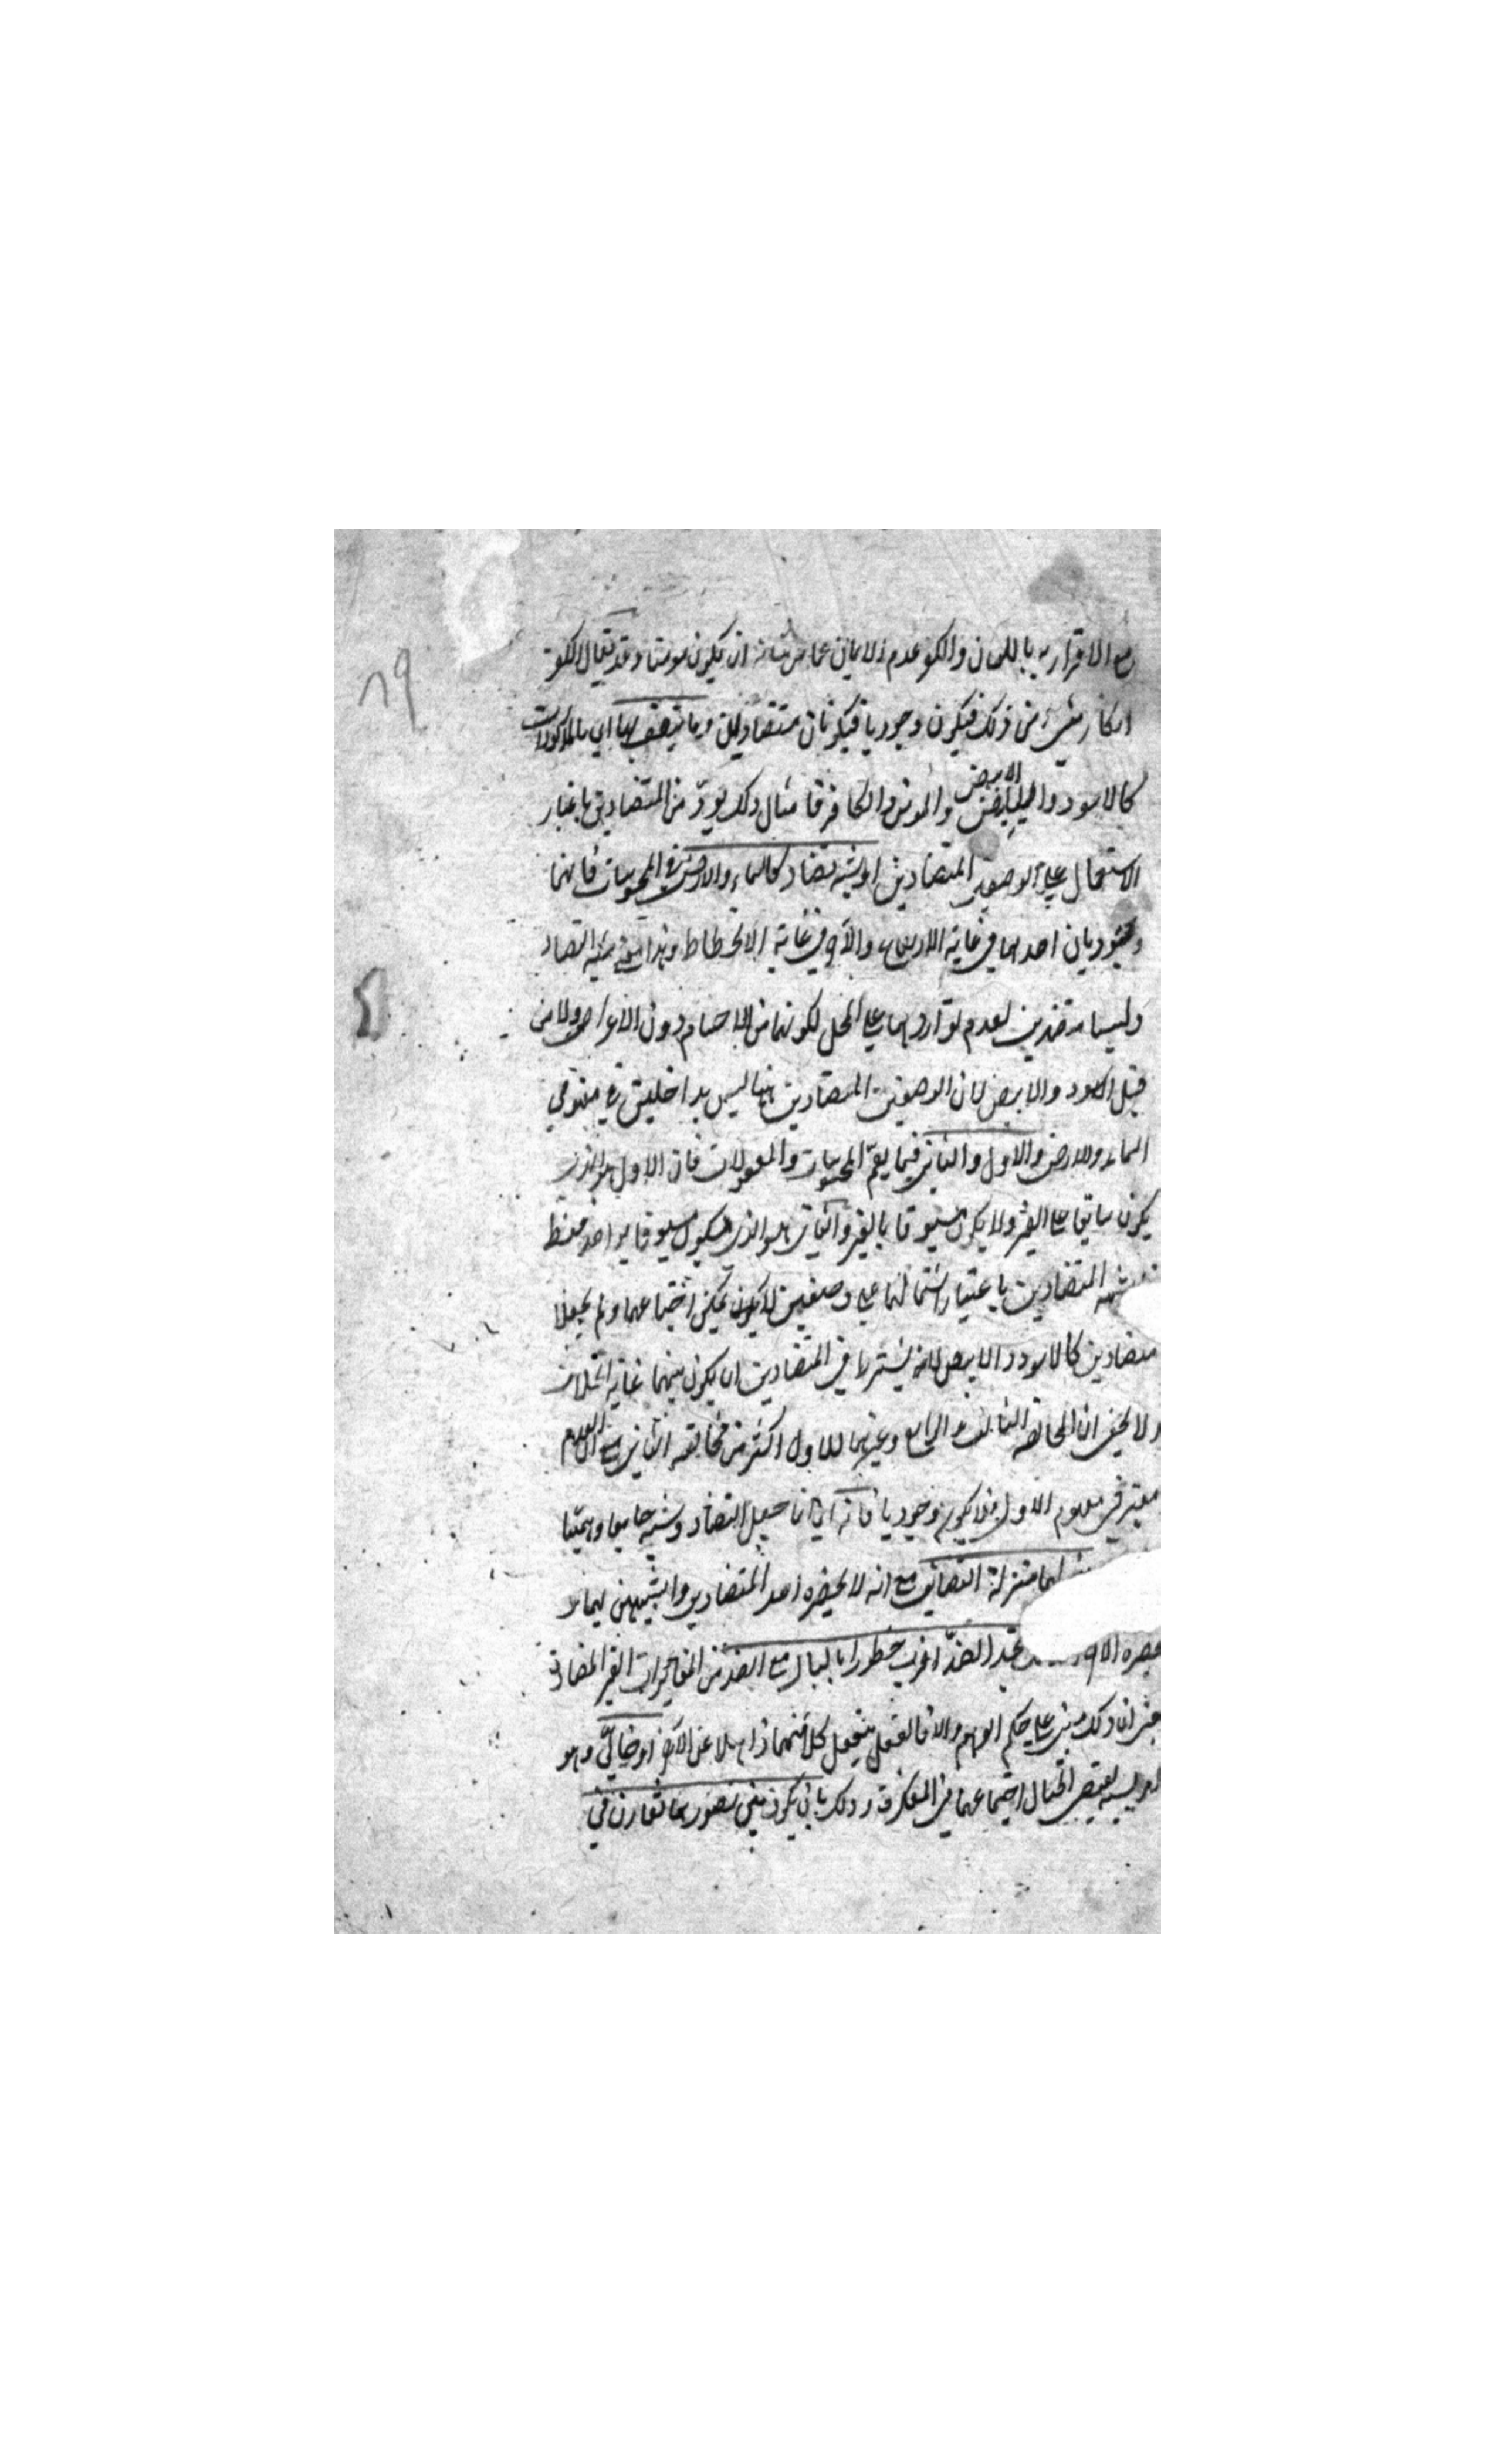 مع الاقرار به باللسان والكفر عدم الايمان عما من شانه ان يكون مؤمنا وقد يقال الكفر
انكار شئ من ذلك فيكون وجوديا فيكونان متضادين وما يتصف بها اي بالمذكورات
كالاسود والابيض والمؤمن والكافر فا مثال ذلك يعد من المتضادين باعتبار
الاشتمال على الوصفين المتضادين او شبه تضاد كالسماء والارض في المحسوسات فانهما
وجوديان احدهما في غاية الارتفاع والآخر في غاية الانحطاط وهذا معنى شبه التضاد
وليسا متضدين لعدم تواردهما على المحل لكونهما من الاجسام دون الاعراض ولا من
قبل الاسود والابيض لان الوصفين المتضادين ههنا ليس بداخلين في مفهومي
السماء والارض والاول والثاني فيما يعم المحسوسات والمعقولات فان الاول هو الذي
يكون سابقا على الغير ولا يكون مسبوقا بالغير والثاني هو الذي يكون مسبوقا بواحد فقط
المتضادين باعتبار اشتمالهما على وصفين لا يمكن اجتماعهما ولم يجعلا
متضادين كالاسود والابيض لانه يشترط في المتضادين ان يكون بينهما غاية الخلاف
ولا يخفى ان المخالفة الثالث والرابع وغيرهما للاول اكثر من مخالفة الثاني مع ان العدم
معتبر في مفهوم الاول فلا يكون وجوديا فانه اي انما جعل التضاد وشبهه جامعا وهميا
لهما منزلة التضايف مع انه لا يحضره احد المتضادين والشبيهين بهما الا
يحضره الآخر تجد الضد اقرب خطورا بالبال مع الضد من المغايرات الغير المضادة
يعني ان ذلك مبني على حكم الوهم والا فالعقل يتعقل كلا منهما ذاهلا عن الآخر او خيالي وهو
امر بسببه يقتضي الخيال اجتماعهما في المفكرة وذلك بان يكون بين تصوريهما تقارن في